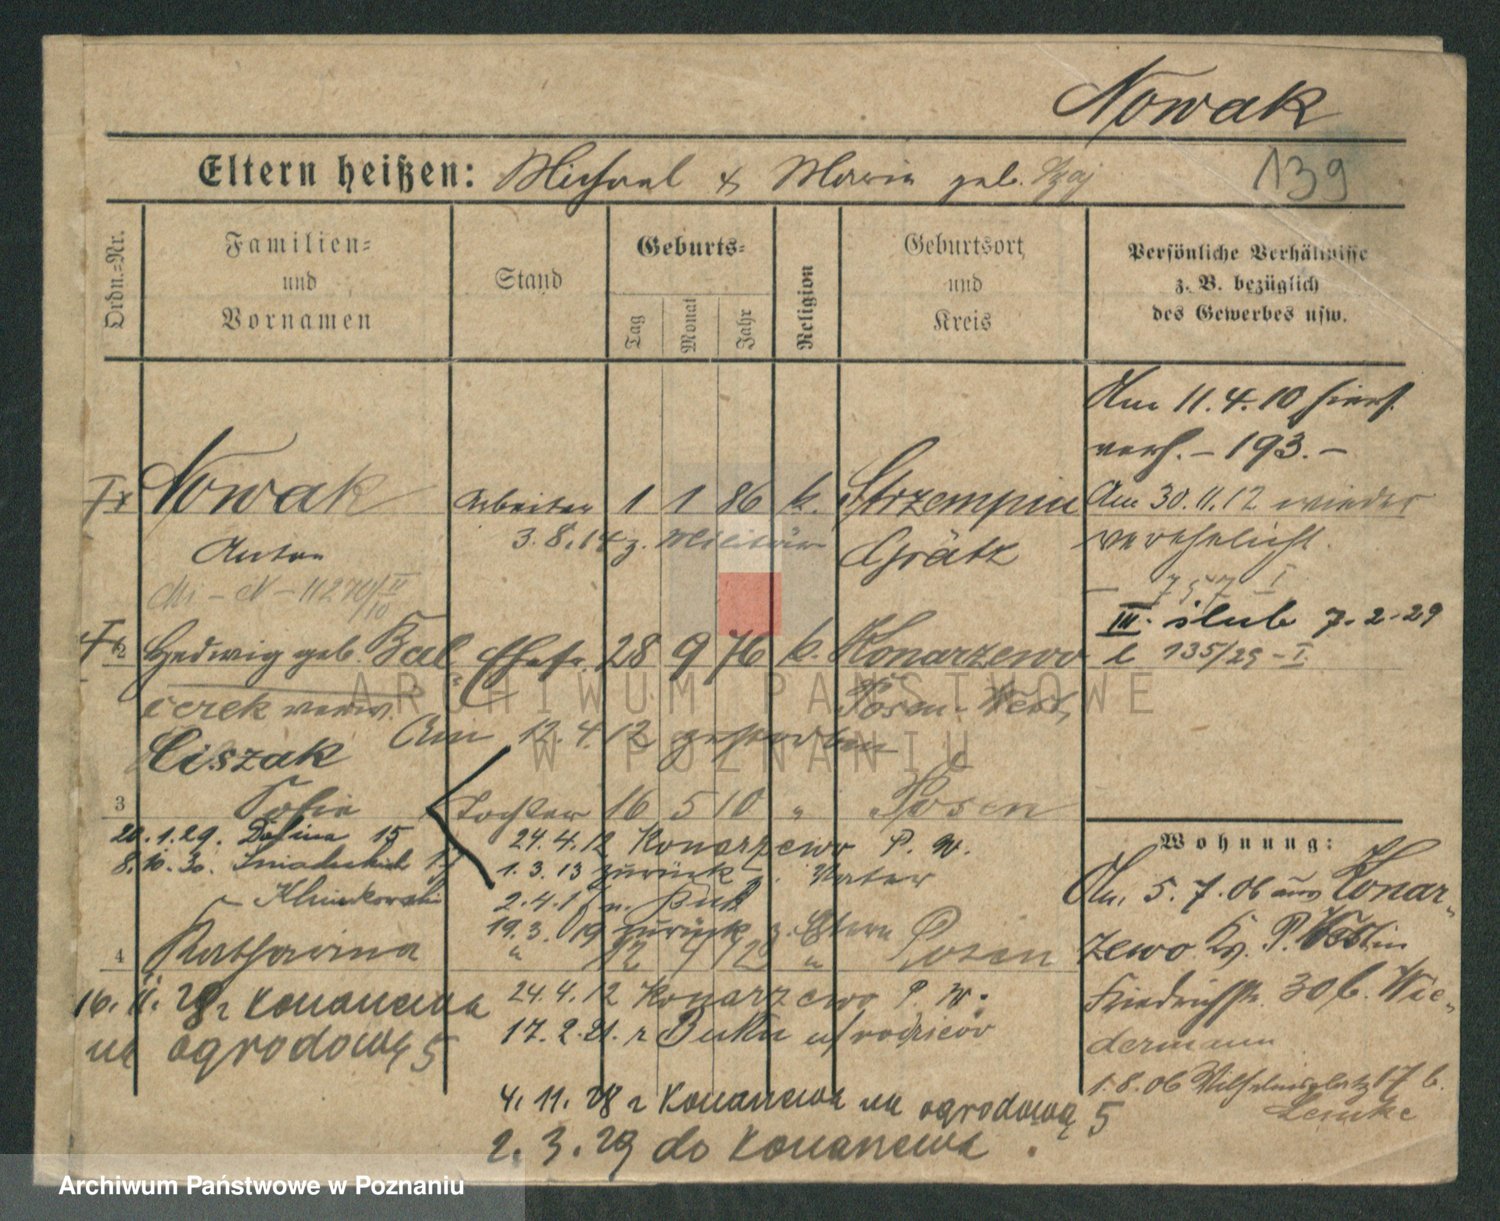 Nowak
Eltern heißen: Michael & Maria geb.
139
Ordn.=Nr.
Familien=
und
Vornamen
Stand
Geburts=
Tag
Monat
Jahr
Religion
Geburtsort
und
Kreis
Persönliche Verhältnisse
z. B. bezüglich
des Gewerbes usw.
Nowak Arbeiter 1 1 86 k. Strzempin
Anton 3.8.14 z. Militär Grätz
Am 11.4.10 hiers.
verh. – 193. –
Am 30.11.12 wieder
verehelicht.
757 I
III. ślub 7.2.29
L 135/29 – I.
2 Hedwig geb. Bal Ehefr. 28 9 76 k. Konarzewo
cerek verw. Posen-West
Ciszak Am 12.4.12 gestorben
3 Sofie Tochter 16 5 10 " Posen
1.29. 15 24.4.12 Konarzewo P. W.
8.10.30. 1.3.13 zurück z. Vater
2.4.1 n. Buk
19.3.19 zurück z. Eltern
4 Katharina " " Posen
24.4.12 Konarzewo P. W.
16.11.28 z Konarzewa
17.2.21. z Buku
na ogrodową 5
4.11.28 z Konarzewa na ogrodową 5
2.3.29 do Konarzewa
Wohnung:
5.7.06 aus Konar-
zewo Kr. P. West in
Friedrichstr. 30 b. Wie-
dermann
1.8.06 Wilhelmsplatz 17 b.
Lemke
ARCHIWUM PAŃSTWOWE
W POZNANIU
Archiwum Państwowe w Poznaniu